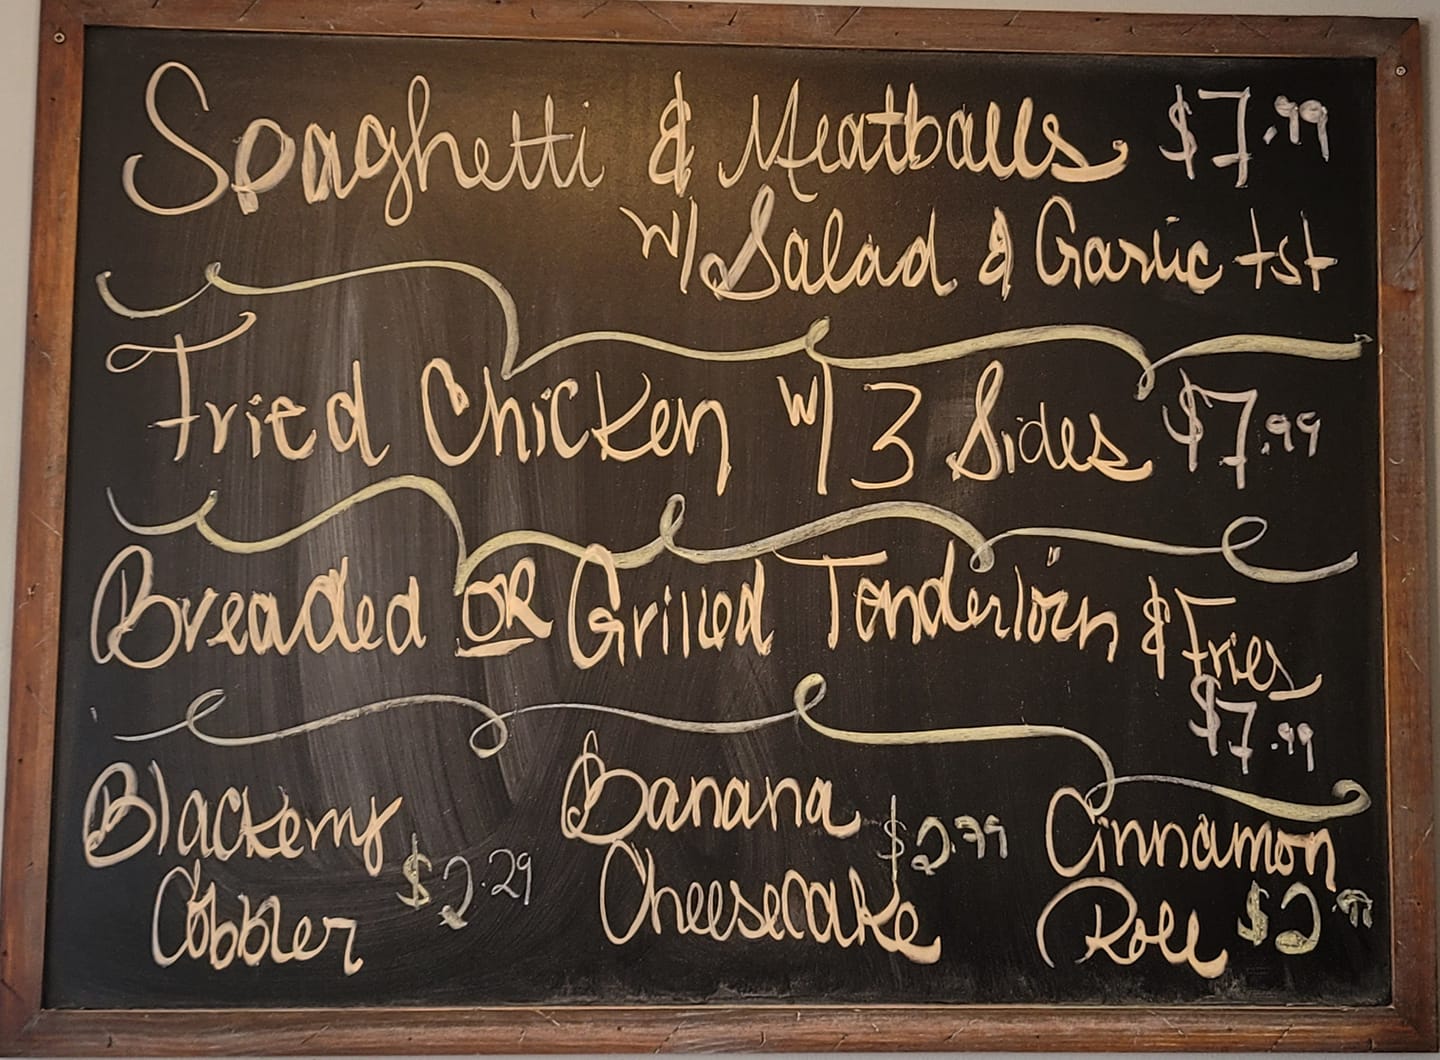 Spaghetti & Meatballs $7.99
w/ Salad & Garlic tst
Fried Chicken w/ 3 Sides $7.99
Breaded OR Grilled Tenderloin & Fries
$7.99
Blackerry
Cobbler $2.29
Banana
Cheesecake $2.79
Cinnamon
Roll $2.99